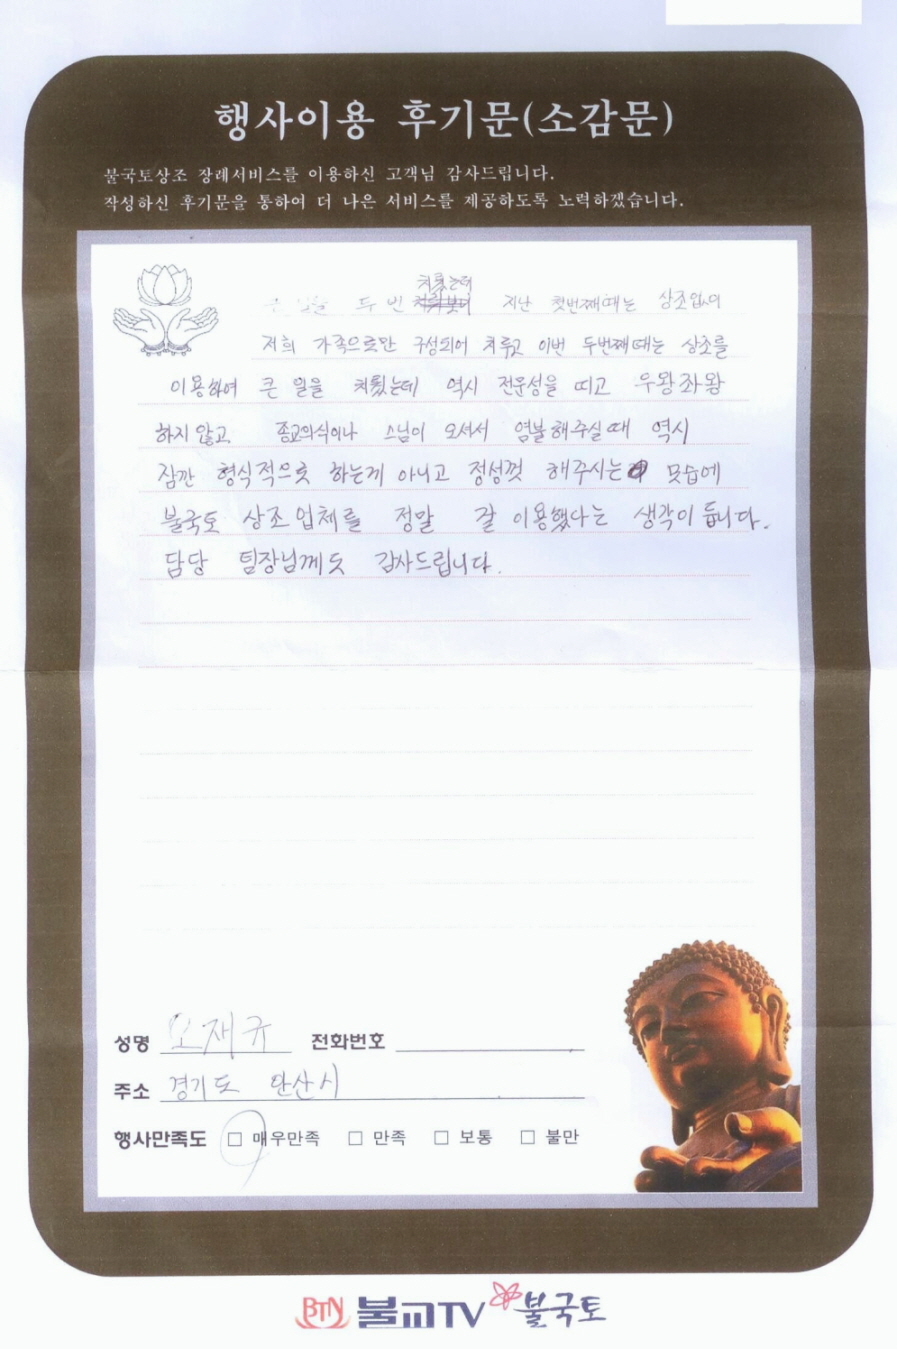 행사이용 후기문(소감문)
불국토상조 장례서비스를 이용하신 고객님 감사드립니다.
작성하신 후기문을 통하여 더 나은 서비스를 제공하도록 노력하겠습니다.
치뤘는데
큰 일을 두 번 지난 첫번째때는 상조없이
저희 가족으로만 구성되어 치루고 이번 두번째때는 상조를
이용하여 큰 일을 치뤘는데 역시 전문성을 띠고 우왕좌왕
하지 않고 종교의식이나 스님이 오셔서 염불해주실때 역시
잠깐 형식적으로 하는게 아니고 정성껏 해주시는 모습에
불국토 상조업체를 정말 잘 이용했다는 생각이 듭니다.
담당 팀장님께도 감사드립니다.
성명 오재규 전화번호
주소 경기도 안산시
행사만족도 □ 매우만족 □ 만족 □ 보통 □ 불만
BTN 불교TV 불국토